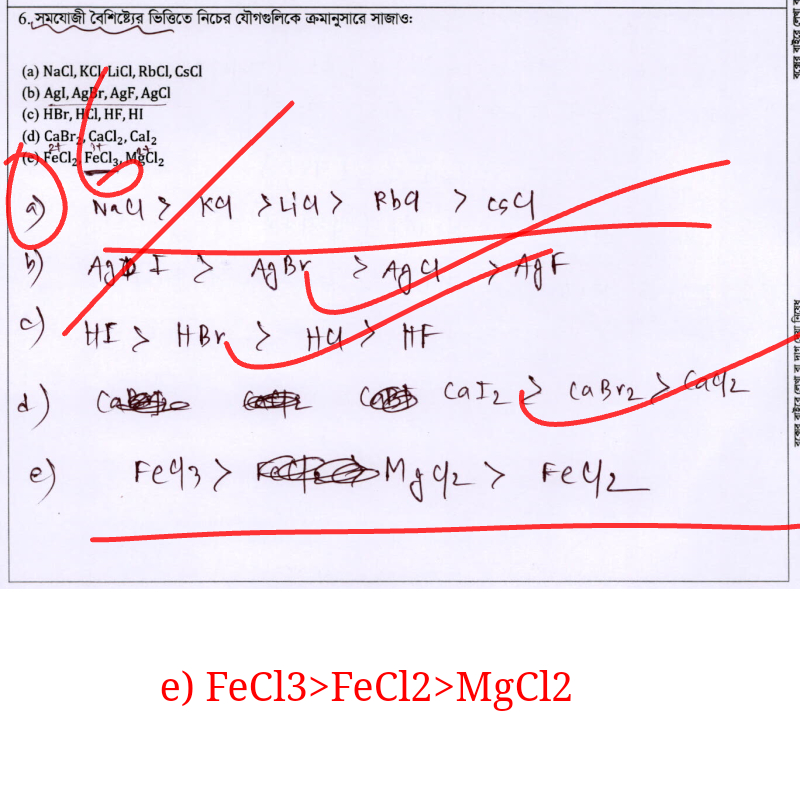 6. সমযোজী বৈশিষ্ট্যের ভিত্তিতে নিচের যৌগগুলিকে ক্রমানুসারে সাজাও:
(a) NaCl, KCl, LiCl, RbCl, CsCl
(b) AgI, AgBr, AgF, AgCl
(c) HBr, HCl, HF, HI
(d) CaBr2, CaCl2, CaI2
2+ 3+ 2+
(e) FeCl2, FeCl3, MgCl2
a) NaCl > KCl > LiCl > RbCl > CsCl
b) AgI > AgBr > AgCl > AgF
c) HI > HBr > HCl > HF
d) CaI2 > CaBr2 > CaCl2
e) FeCl3 > MgCl2 > FeCl2
e) FeCl3>FeCl2>MgCl2